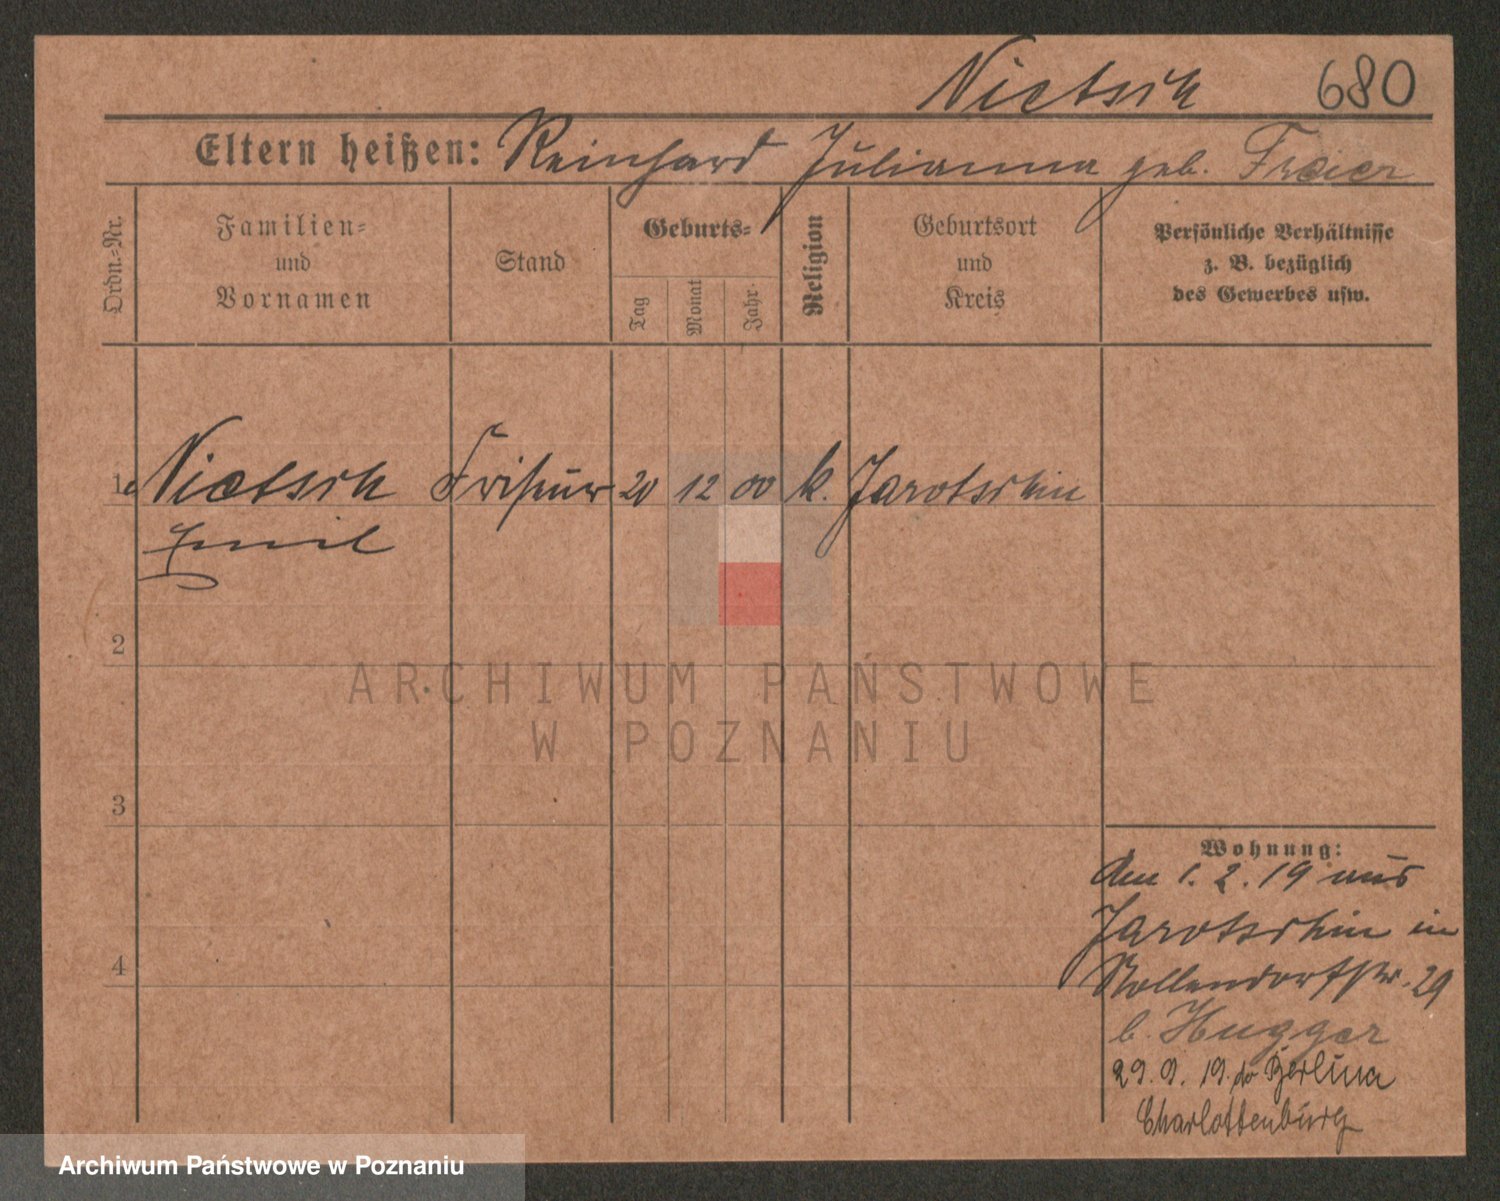 Nietsch 680
Eltern heißen: Reinhard Julianna geb. Freier
Ordn.=Nr.
Familien=
und
Vornamen
Stand
Geburts=
Tag
Monat
Jahr
Religion
Geburtsort
und
Kreis
Persönliche Verhältnisse
z. B. bezüglich
des Gewerbes usw.
1. Nietsch Friseur 20 12 00 k. Jarotschin
Emil
2
3
4
Wohnung:
den 1. 2. 19 aus
Jarotschin in
Nollendorfstr. 29
b. Hugger
29. 9. 19. do Berlina
Charlottenburg
ARCHIWUM PAŃSTWOWE
W POZNANIU
Archiwum Państwowe w Poznaniu